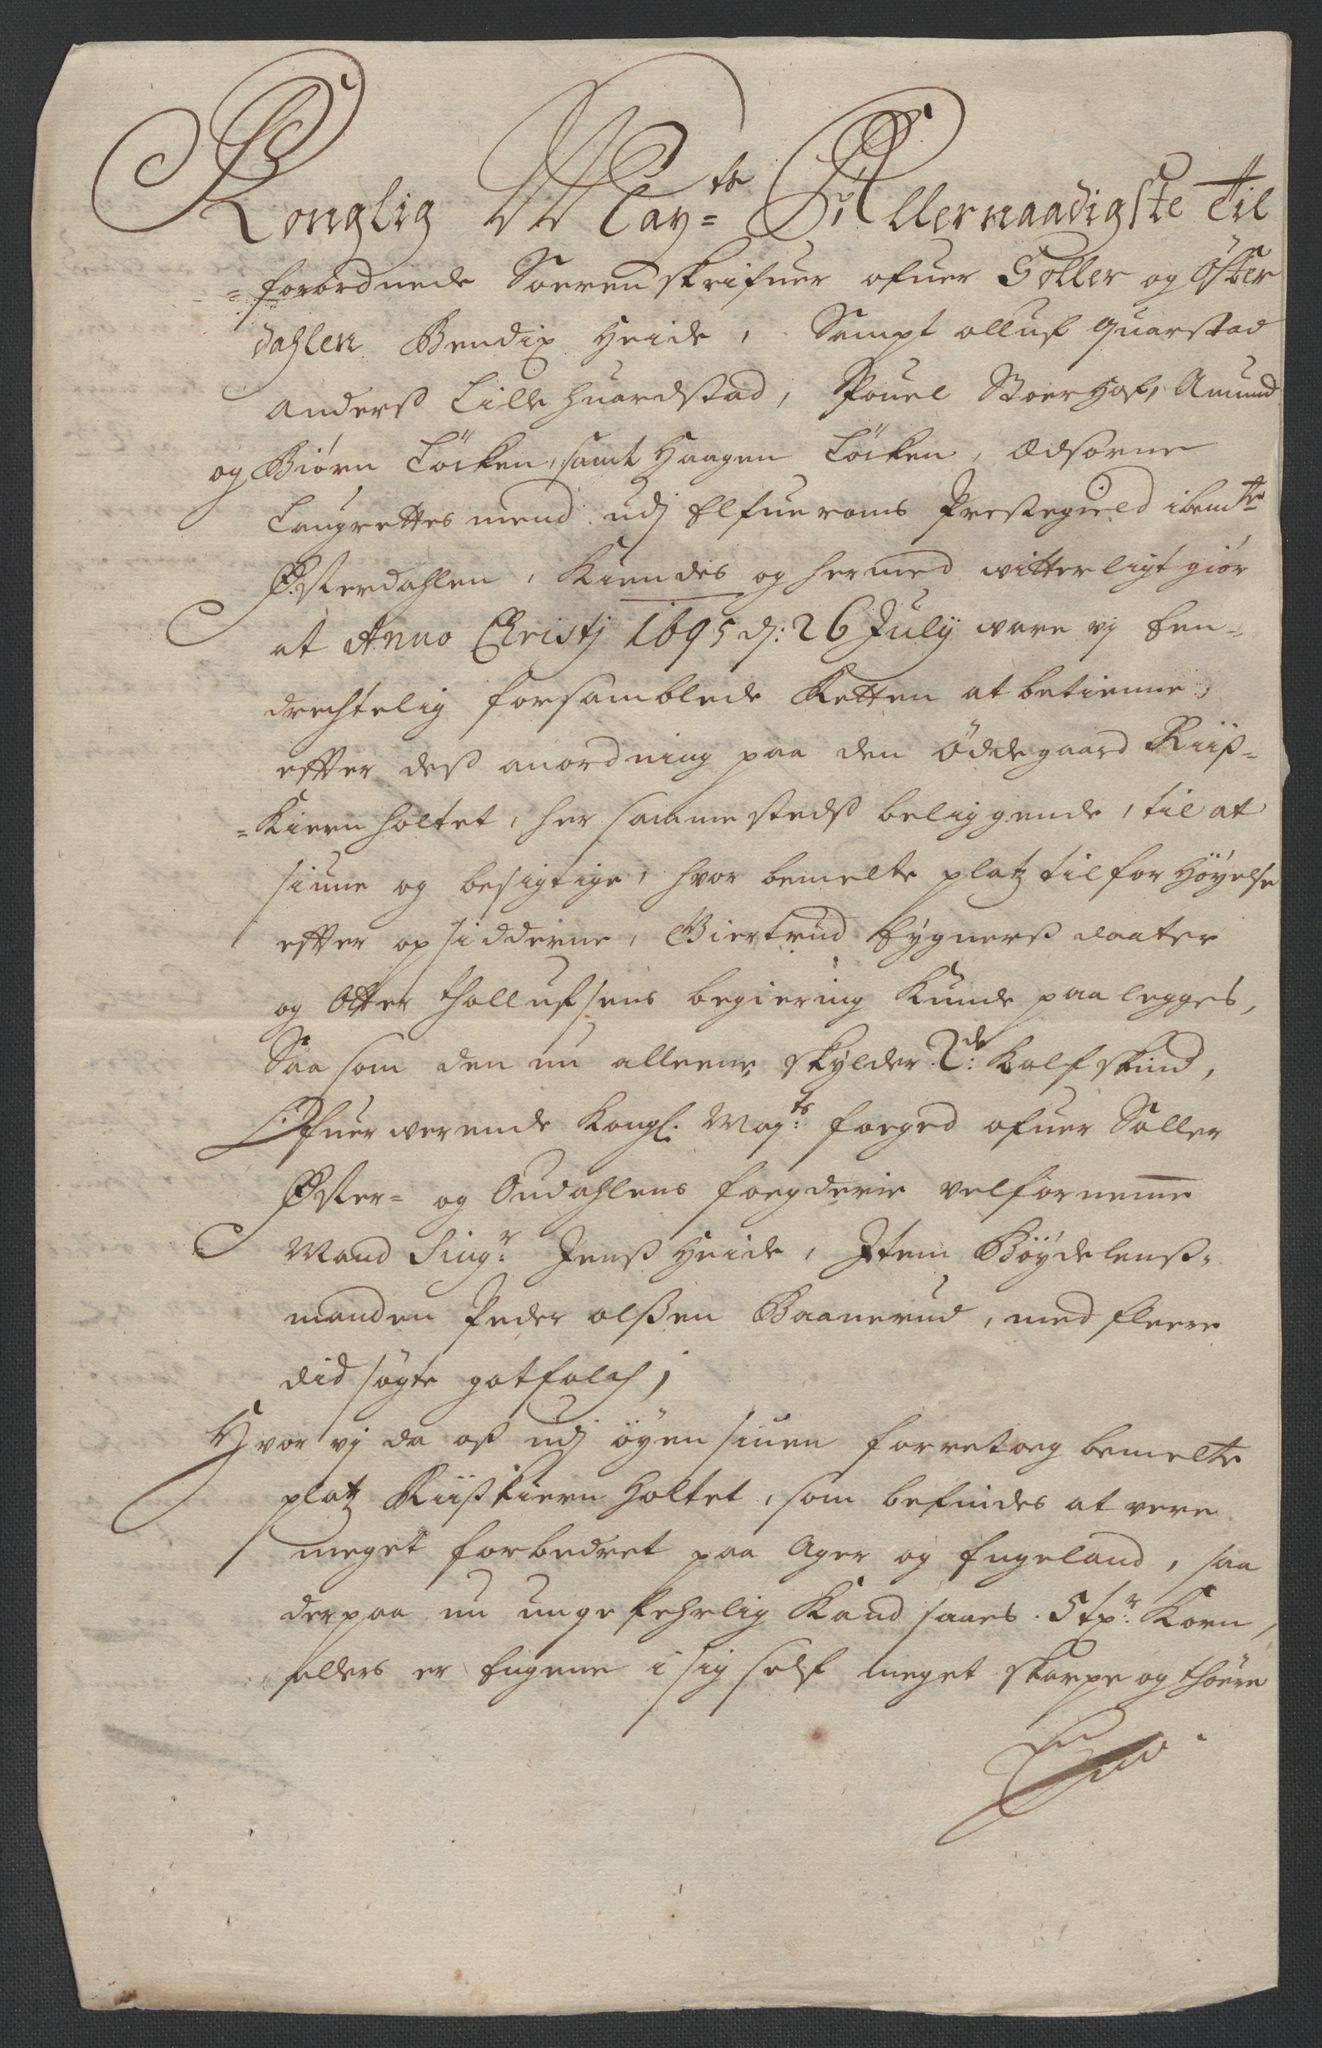 Konglig May:ts Allernaadigste Til
=forordnede Sorenskrifuer ofuer Soller og Öster
dahlen Bendix Heide, Sampt olluf Quarstad
Anderß Lille huardstad, Pouel Stoer Hof, Amund
og Biörn Löcken, samt Haagen Löcken, Edsorne
Laugrettes mend udj Elfueroms Prestegield ibemte
Österdahlen, Kiendes og hermed witterligt giör
at Anno Christj 1695 d: 26 Julij ware vj Een=
drechtelig forsamblede Retten at betienne,
effter deß anordning paa den Öddegaard Riiß=
=Kiern holtet, her sammestedß beliggende, til at
siune og besigtige, hvor bemelte platz til forhöyelse
effter opsidderne, Giertrud Sygnerß daater
og Otter Thollufsens begiering Kunde paalegges,
Saasom den nu alleene skylder 2de: Kalfskind,
Ofuerwerende Kongl: May:ts foeged ofuer Soller
Öster= og Oudahlens foegderie velfornemme
Mand Sing:r Jenß Heide, Item Böydelenß=
manden Peder olßen Baanerud, med fleere
did sögte gotfolch;
Hvor vj da oß udj öyensiuen forretoeg bemelte
platz Riißkiern Holtet, som befindes at vere
meget forbedret paa Ager og Engeland, saa
derpaa nu ungefehrlig Kand saaes 5 tp:r Korn,
ellers er Engene i sig self meget skarpe og thörre